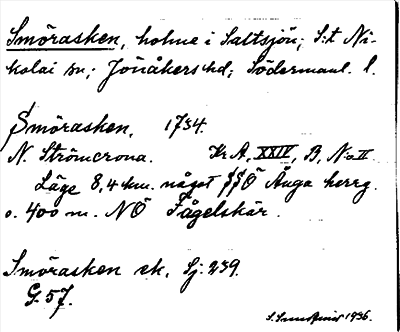 Smörasken, holme i Saltsjön; S:t Ni-
kolai sn; Jönåkers hd; Södermanl. l.
Smörasken, 1734.
N. Strömcrona. Kr A, XXIV, B, No II
Läge 8,4 km. något SSÖ Änga herrg.
o. 400 m. NÖ Fågelskär.
Smörasken ek, Sj: 239.
G. 57.
1936.